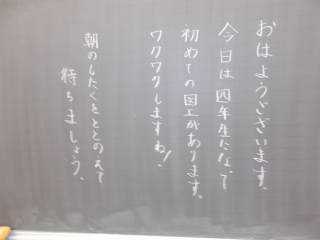 おはようございます。
今日は四年生になって
初めての図工があります。
ワクワクしますね!
朝のしたくをととのえて
待ちましょう。